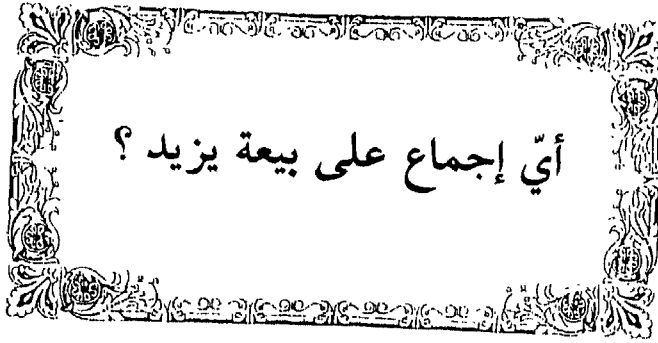 أيّ إجماع على بيعة يزيد ؟